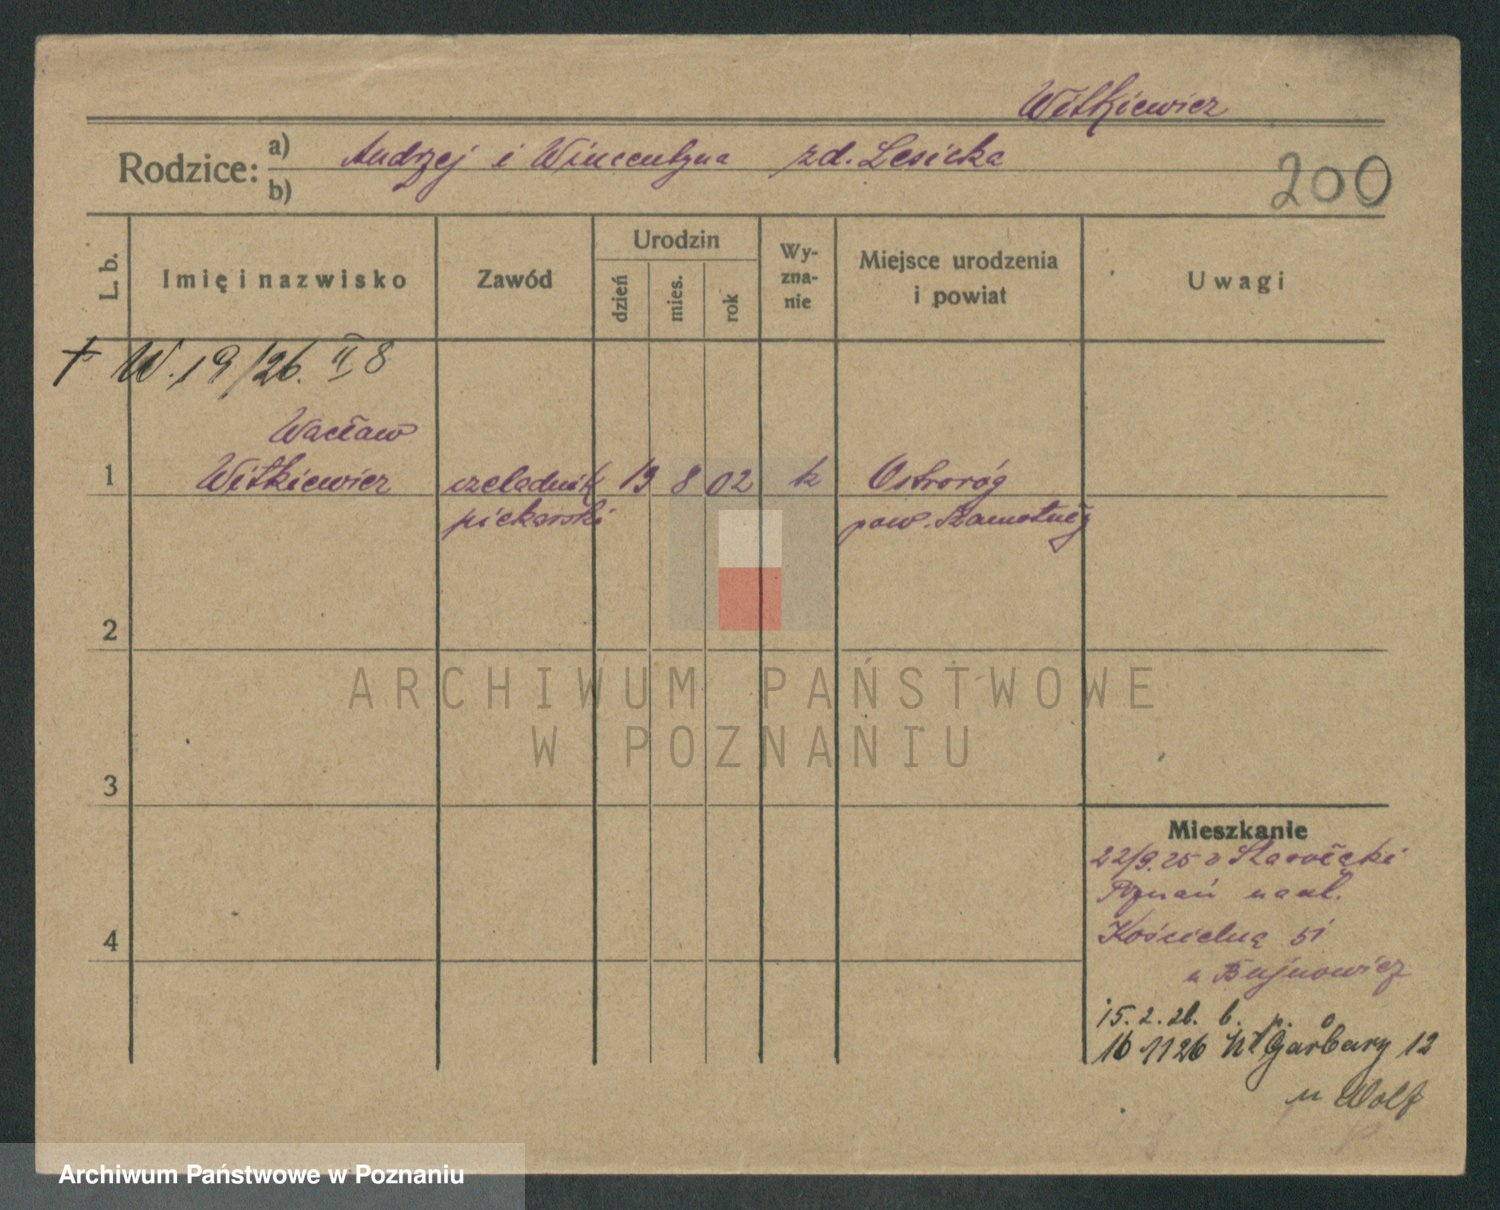 Witkiewicz
Rodzice:
a) Andrzej i Wincentyna zd. Lesicka
b)
200
L. b.
Imię i nazwisko
Zawód
Urodzin
dzień
mies.
rok
Wy-
zna-
nie
Miejsce urodzenia
i powiat
Uwagi
† W. 19/26. II 8
Wacław
1 Witkiewicz czeladnik 19 8 02 k Ostroróg
piekarski pow. Szamotuły
2
3
4
ARCHIWUM PAŃSTWOWE
W POZNANIU
Mieszkanie
22/9.25 z Starołęki
Poznań na ul.
Kościelną 51
u Bujnowicz
15. 2. 26. b. p. o
16 11 26 Garbary 12
u Wolf
Archiwum Państwowe w Poznaniu